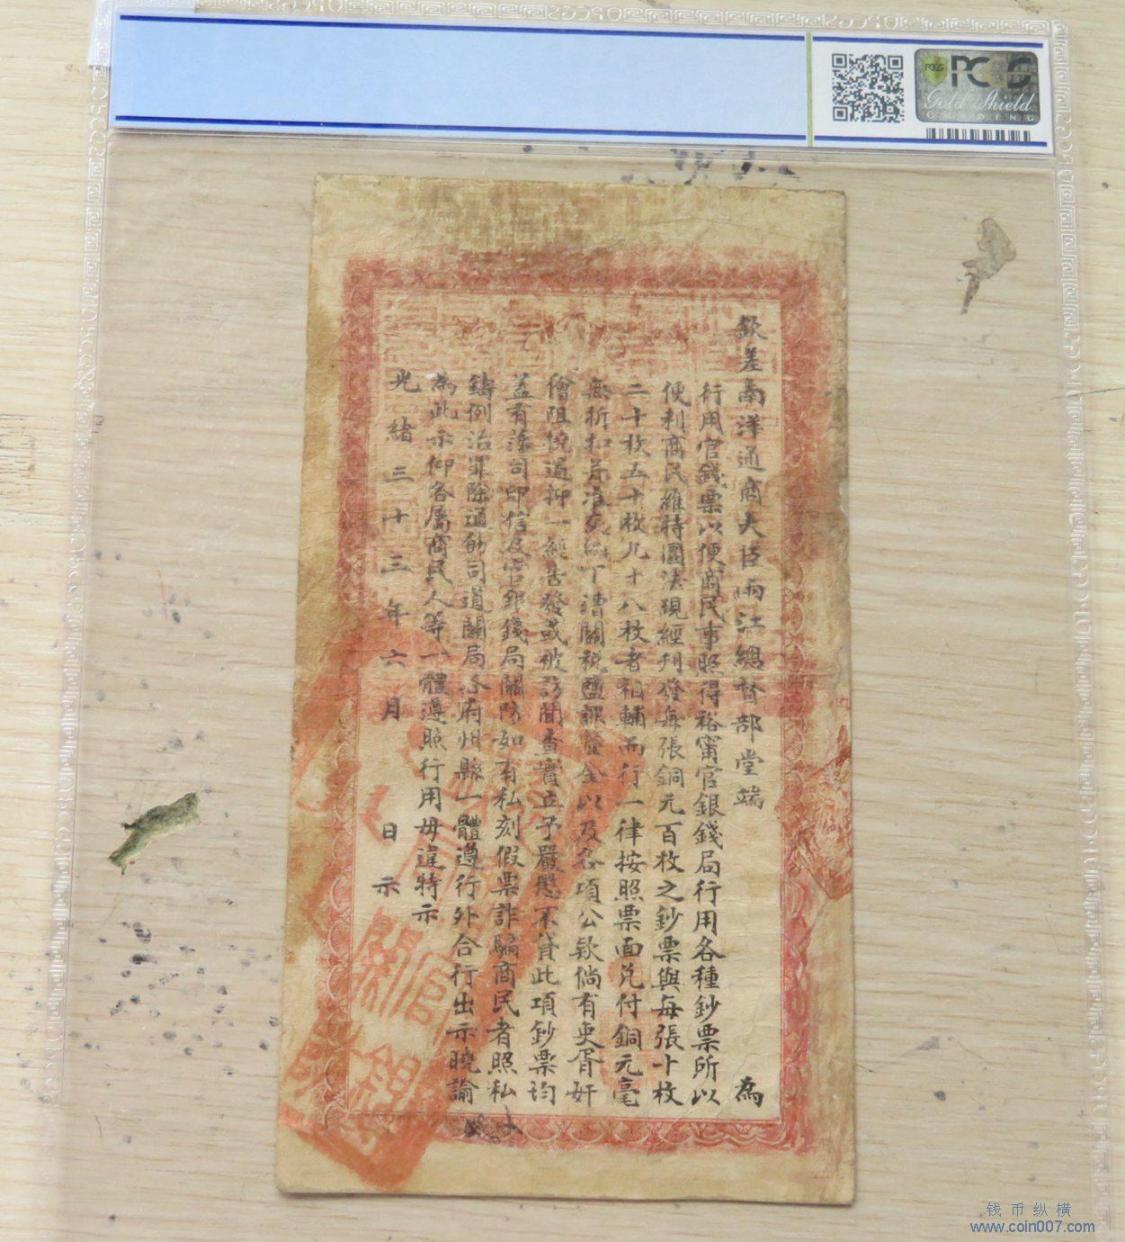 PCGS
PCGS
Gold Shield
GRADING
欽差南洋通商大臣兩江總督部堂端 為
行用官錢票以便商民事照得裕甯官銀錢局行用各種鈔票所以
便利商民維持圜法現經刊發每張銅元百枚之鈔票與每張十枚
二十枚五十枚九十八枚者相輔而行一律按照票面兑付銅元毫
無折扣并准交納丁漕關稅鹽課釐金以及各項公欵倘有吏胥奸
儈阻撓過抑一經告發或被訪聞查實立予嚴懲不貸此項鈔票均
蓋有藩司印信及官銀錢局關防如有私刻假票詐騙商民者照私
鑄例治罪除通飭司道關局各府州縣一體遵行外合行出示曉諭
為此示仰各屬商民人等一體遵照行用毋違特示
光緒三十三年六月 日示
官銀
關防
钱币纵横
www.coin007.com